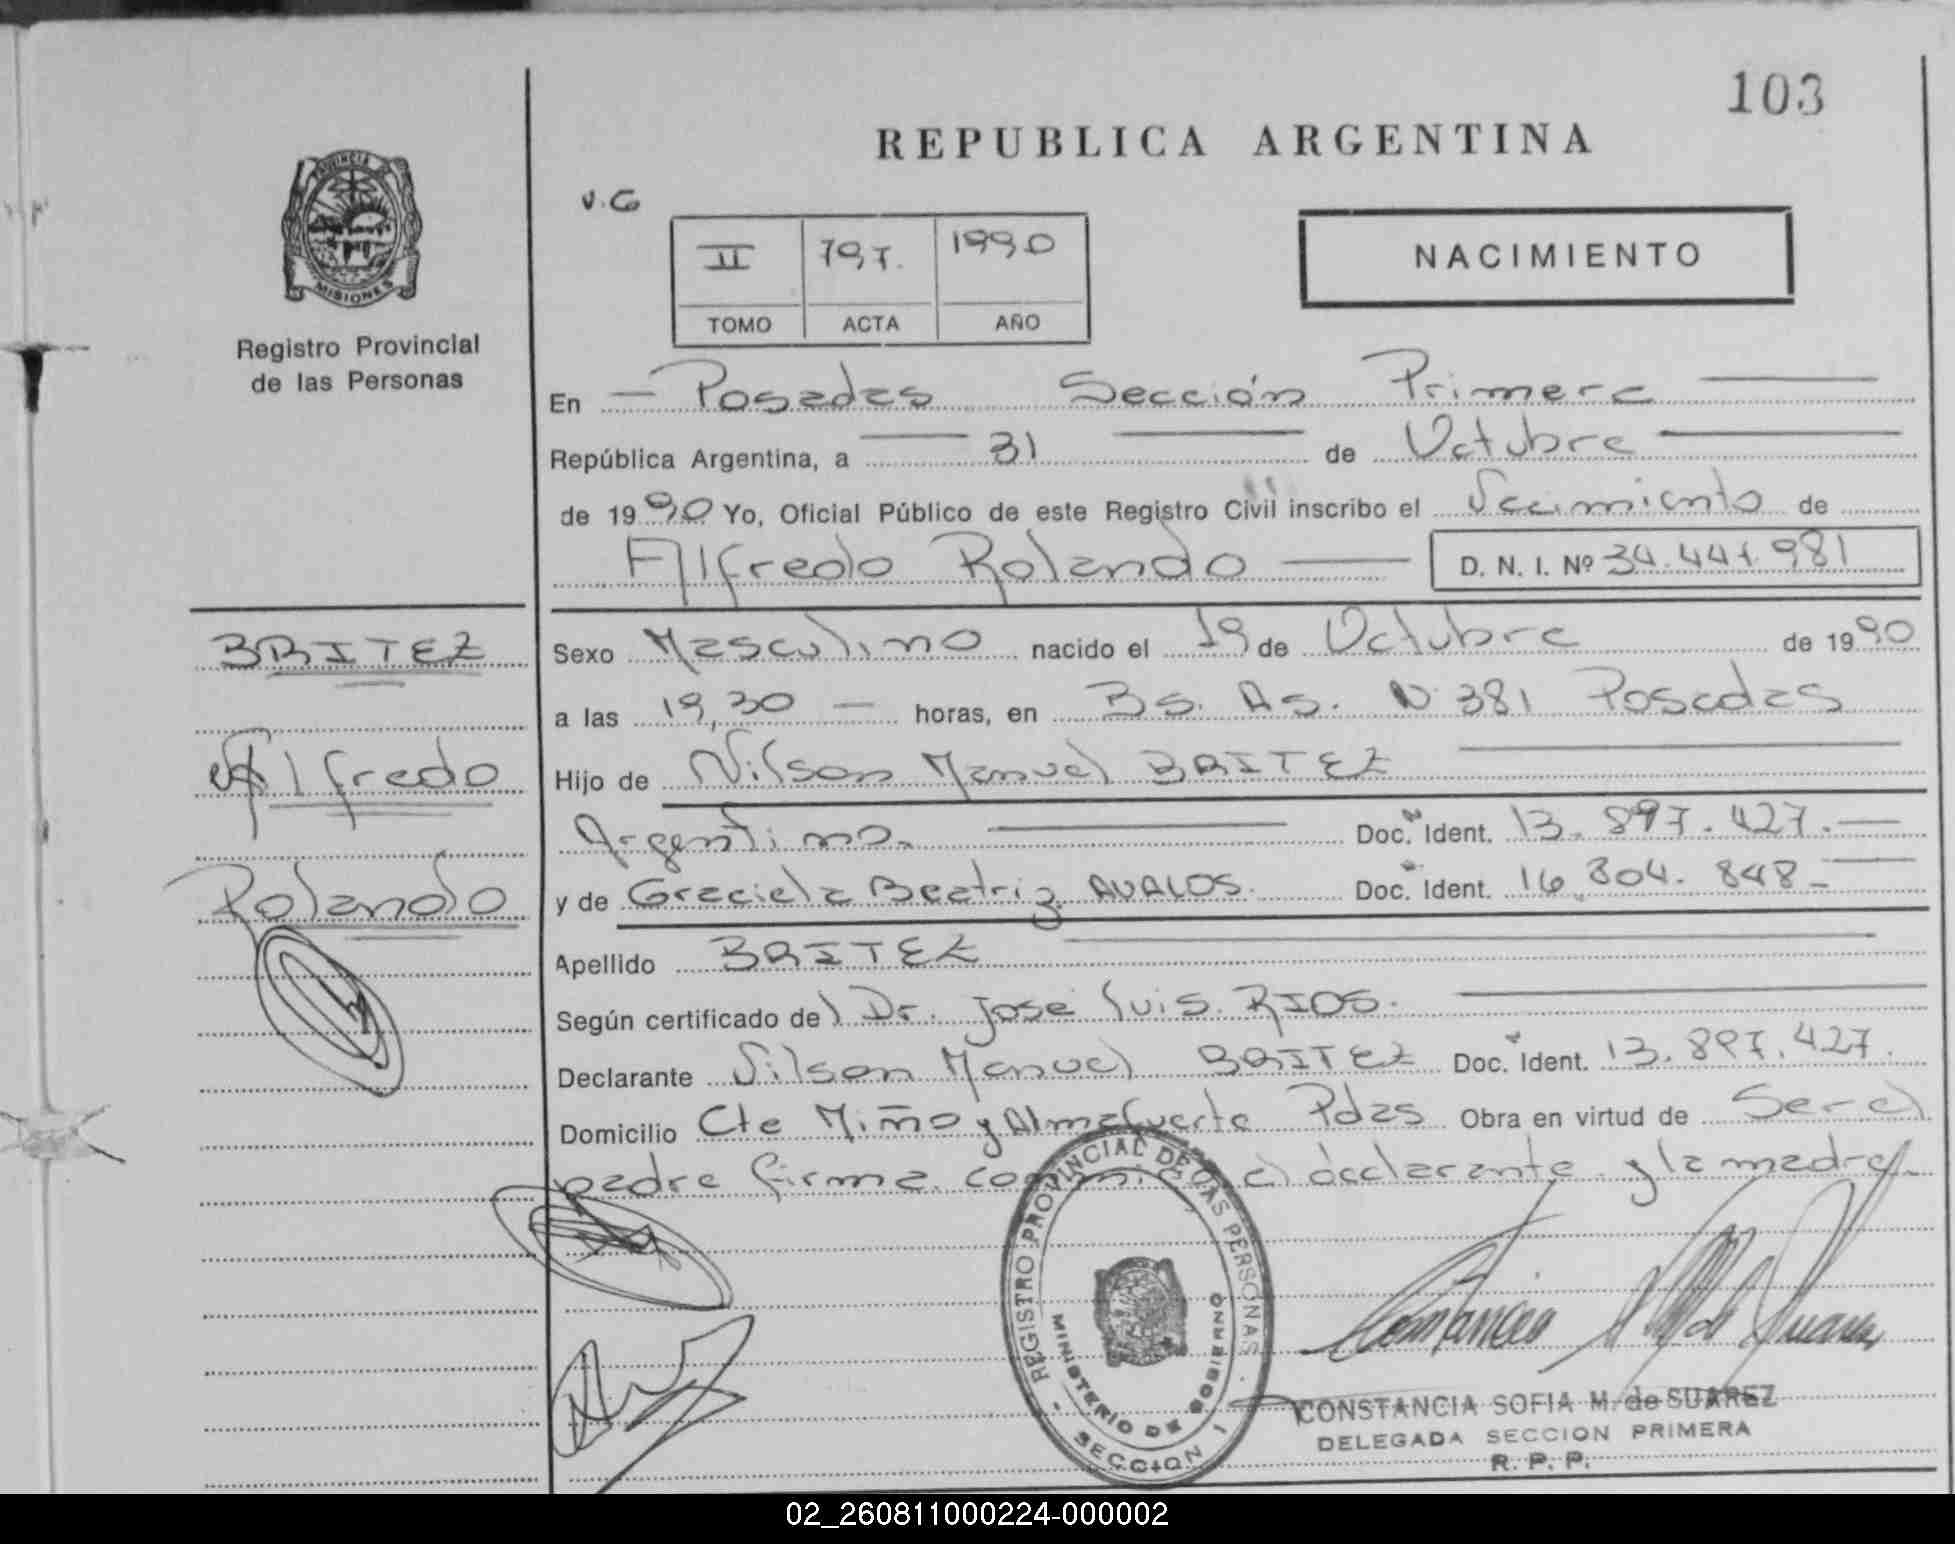 103
REPUBLICA ARGENTINA
V.G
PROVINCIA DE
MISIONES
Registro Provincial
de las Personas
II 797. 1990
TOMO ACTA AÑO
NACIMIENTO
En Posadas Sección Primera
República Argentina, a 31 de Octubre
de 1990 Yo, Oficial Público de este Registro Civil inscribo el Nacimiento de
Alfredo Rolando D. N. I. Nº 34.447.981
BRITEZ
Alfredo
Rolando
Sexo Masculino nacido el 19 de Octubre de 1990
a las 19,30 horas, en Bs. As. N 381 Posadas
Hijo de Nilson Manuel BRITEZ
Argentino. Doc. Ident. 13.897.427.
y de Graciela Beatriz AVALOS. Doc. Ident. 16.804.848
Apellido BRITEZ
Según certificado del Dr. José Luis RIOS.
Declarante Nilson Manuel BRITEZ Doc. Ident. 13.897.427.
Domicilio Cte Miño y Almafuerte Pdas Obra en virtud de Ser el
padre firma conmigo el declarante y la madre
REGISTRO PROVINCIAL DE LAS PERSONAS
MINISTERIO DE GOBIERNO
SECCION 1
Constancia M de Suarez
CONSTANCIA SOFIA M. de SUAREZ
DELEGADA SECCION PRIMERA
R. P. P.
02_260811000224-000002